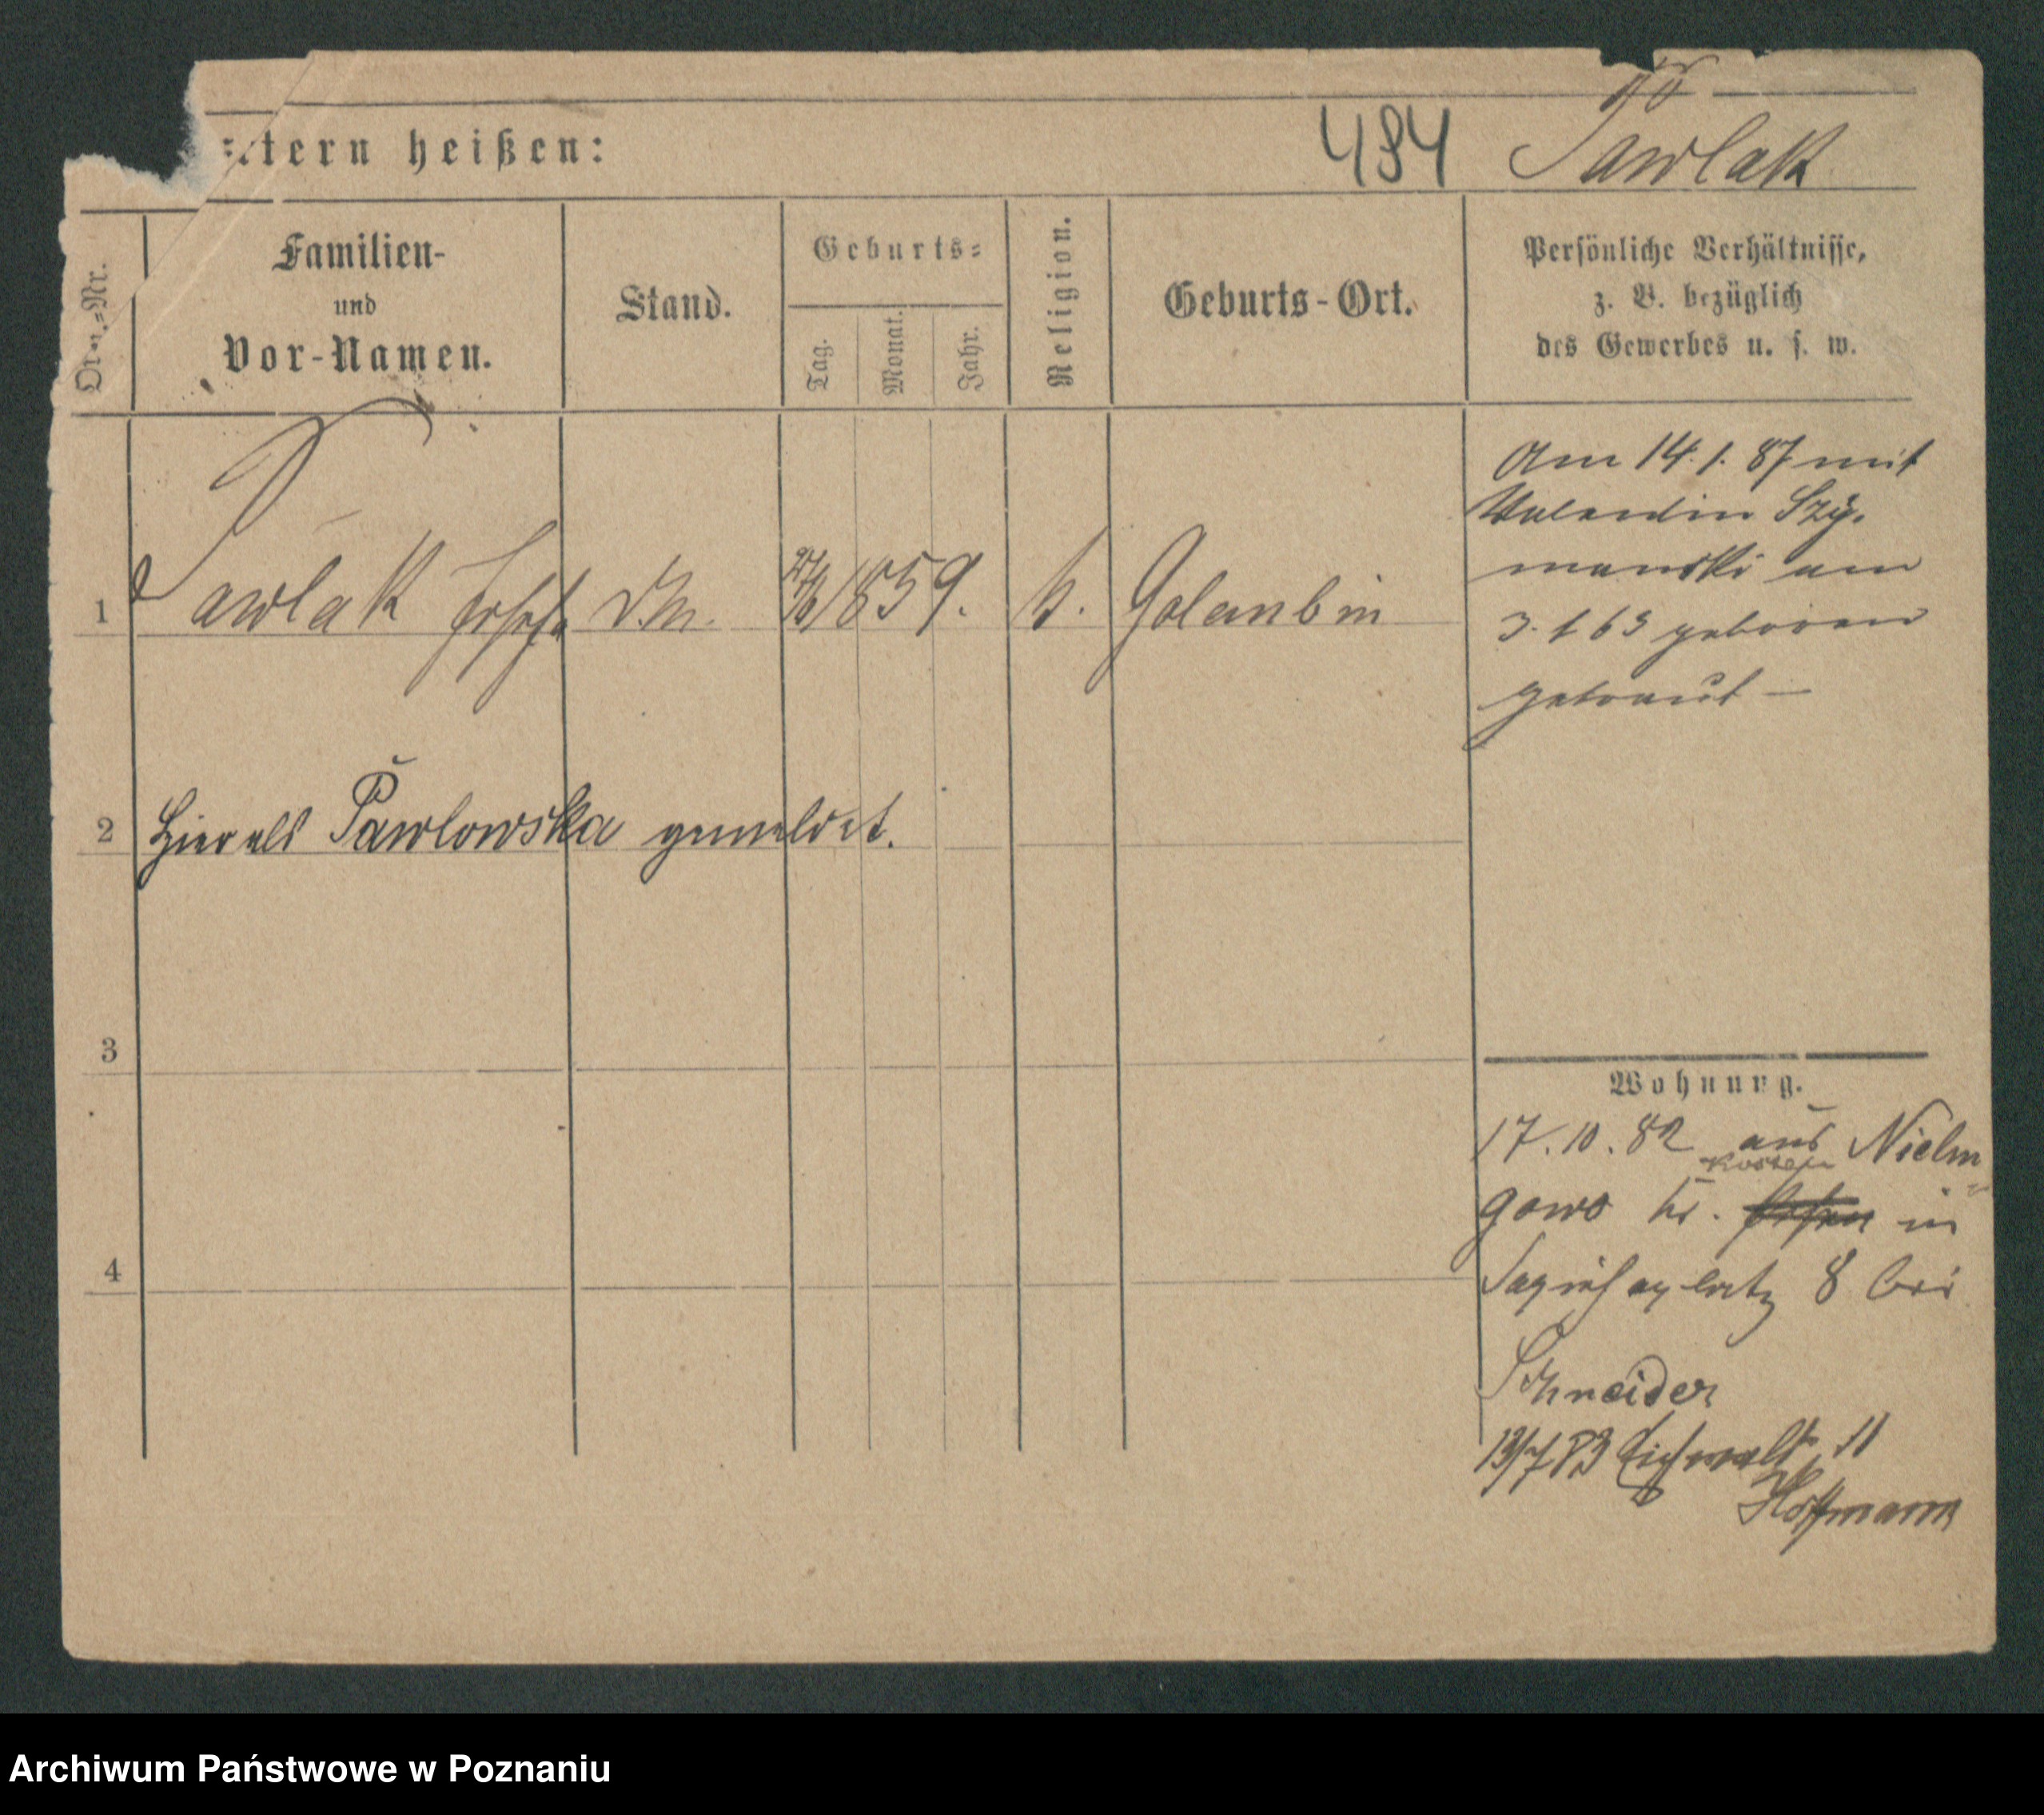 tern heißen:
484 Pawlak
Familien-
und
Vor-Namen.
Stand.
Geburts-
Tag.
Monat.
Jahr.
Religion.
Geburts-Ort.
Persönliche Verhältnisse,
z. B. bezüglich
des Gewerbes u. s. w.
1 Pawlak 1859. k. Golanbin
Am 14.1.87 mit
Valentin Szy-
manski am
3.1 63 geboren
getraut —
2 Hier als Pawlowska gemeldet.
3
4
Wohnung.
17.10.82 aus Nielen
Kosten
gowo Kr. Posen in
Sapiehaplatz 8 bei
Schneider
13/7 83 Eichwaldstr 11
Hoffmann
Archiwum Państwowe w Poznaniu